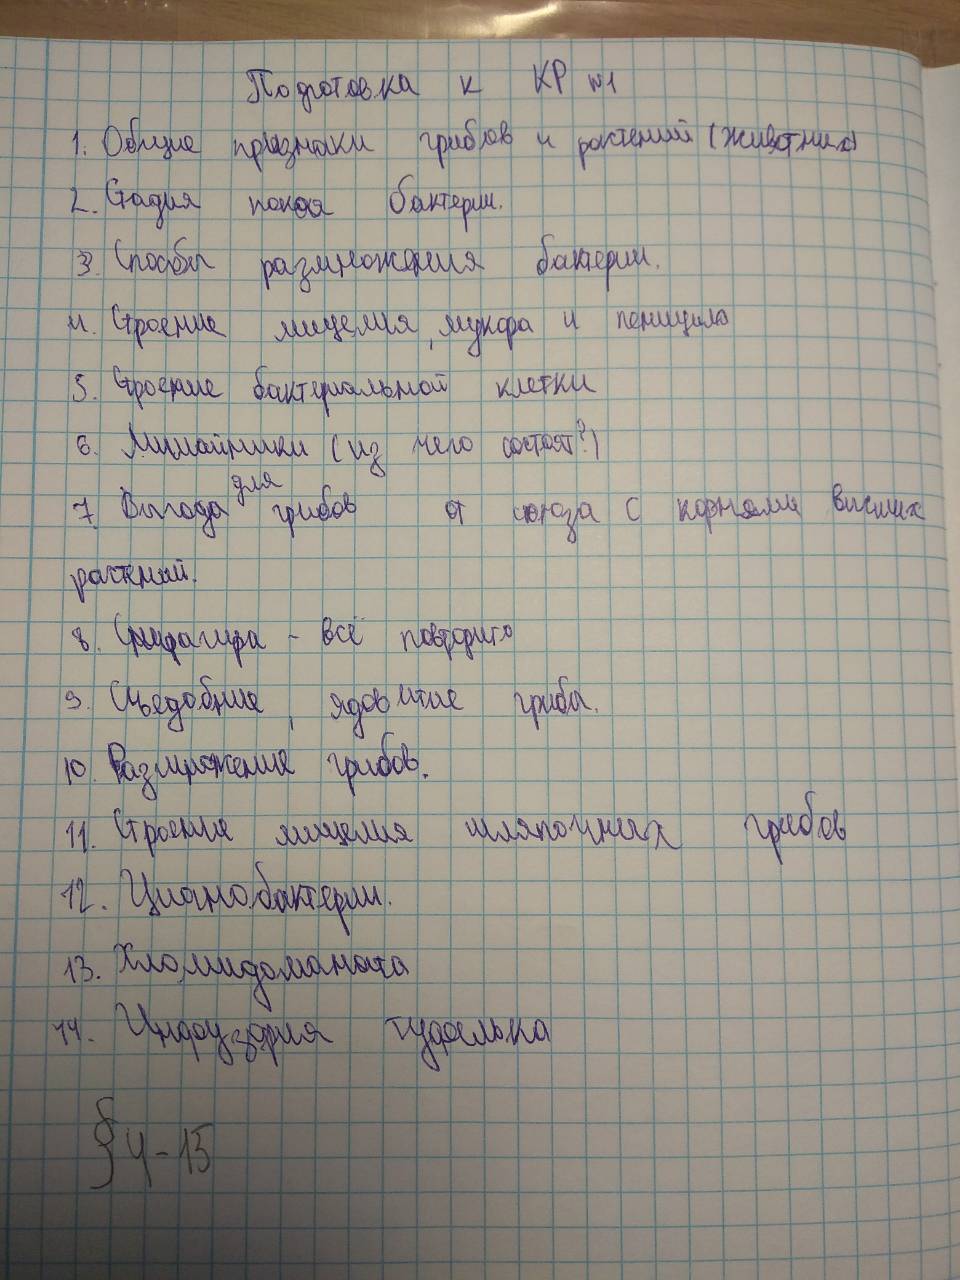 Подготовка к КР №1
1. Общие признаки грибов и растений (животных)
2. Стадия покоя бактерии.
3. Способы размножения бактерии.
4. Строение мицелия, мукора и пеницила
5. Строение бактериальной клетки
6. Лишайники (из чего состоят?)
7. Выгода для грибов от союза с корнями высших
растений.
8. Спирагира - всё
9. Съедобные, ядовитые грибы.
10. Размножение грибов.
11. Строение мицелия шляпочных грибов
12. Цианобактерии.
13. Хломидоманада
14. Инфузория туфелька
§ 4-15